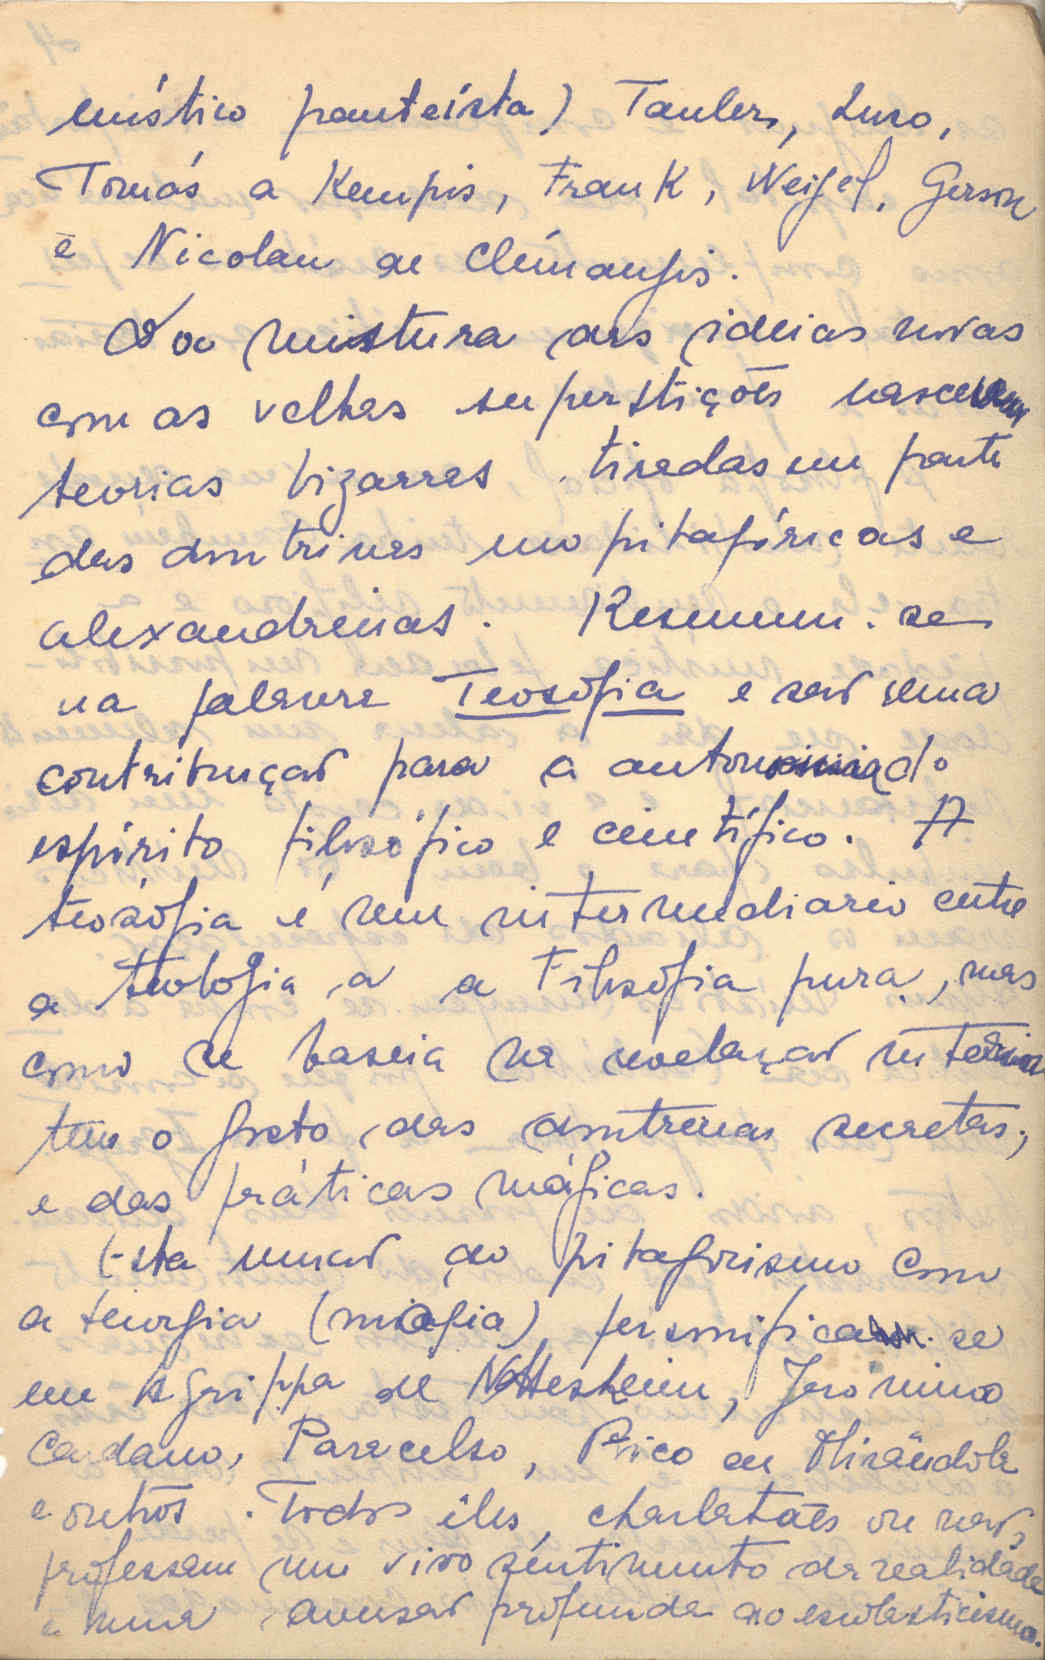 místico panteísta) Tauler, Suso,
Tomás a Kempis, Frank, Weigel, Gerson
e Nicolau de Clémangis.
Da mistura das ideias novas
com as velhas superstições nasceram
teorias bizarras tiradas em parte
das doutrinas neopitagóricas e
alexandrinas. Resumem-se
na palavra Teosofia e são uma
contribuição para a autonomia do
espírito filosófico e científico. A
teosofia é um intermediario entre
a teologia e a Filosofia pura, mas
como se baseia na revelação interior
tem o gosto das doutrinas secretas,
e das práticas mágicas.
Esta união do pitagorismo com
a teurgia (magia) personifica-se
em Agrippa de Nettesheim, Jerónimo
Cardano, Paracelso, Pico de Mirândola
e outros. Todos êles, charlatães ou não,
professam um vivo sentimento da realidade
e uma aversão profunda ao escolasticismo.